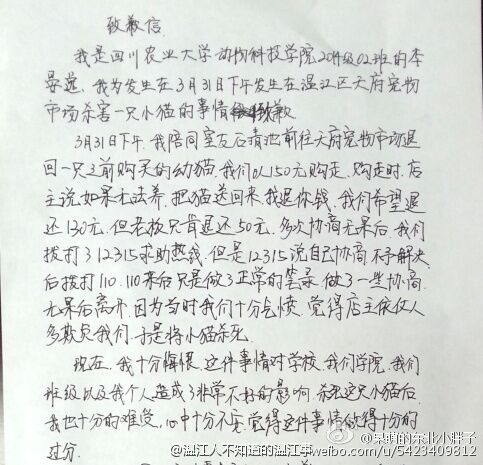 致歉信
我是四川农业大学动物科技学院2014级02班的李
晏逸,我为发生在3月31日下午发生在温江区天府宠物
市场杀害一只小猫的事情致歉
3月31日下午,我陪同室友石靖池前往天府宠物市场退
回一只之前购买的幼猫,我们以150元购走,购走时,店
主说,如果无法养,把猫送回来,我退你钱,我们希望退
还130元,但老板只肯退还50元,多次协商无果后,我们
拨打了12315求助热线,但是12315说自己协商,不予解决
后拨打110,110来后只是做了正常的笔录,做了一些协商,
无果后离开,因为当时我们十分气愤,觉得店主依仗人
多欺负我们,于是将小猫杀死,
现在,我十分悔恨,这件事情对学校,我们学院,我们
班级以及我个人造成了非常不好的影响,杀死这只小猫后,
我也十分的难受,心中十分不安,觉得这件事情做得十分的
过分.
@呆萌的东北小胖子
@温江人不知道的温江事
weibo.com/u/5423409812